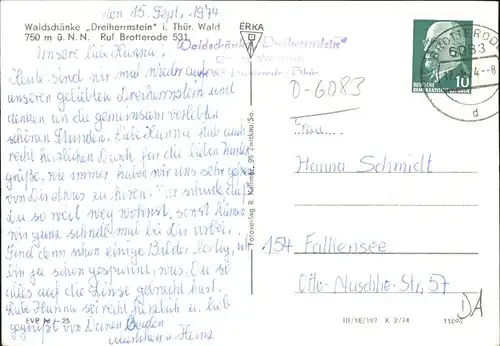 den 15. Sept. 1974
Waldschänke „Dreiherrnstein" i. Thür. Wald
750 m ü. N. N. Ruf Brotterode 531
ERKA
Waldschänke „Dreiherrnstein"
BROTTERODE
6083
4-8
d
10
DEUTSCHE
DEMOKRATISCHE REPUBLIK
D-6083
Unsere liebe Hanna!
Heute sind wir mal wieder auf
unseren geliebten Dreiherrnstein und
denken an die gemeinsam verlebten
schönen Stunden. Liebe Hanna hab auch
recht herzlichen Dank für die lieben
grüße, wie immer haben wir uns sehr gefreut
von Dir etwas zu hören. schade daß
Du so weit weg wohnst, sonst kämen
wir ganz schnell mal bei Dir vorbei.
Sind denn schon einige Bilder fertig, ich
bin ja schon gespannt, was Du so
alles auf die Linse gebracht hast.
Liebe Hanna sei recht herzlich u. lieb
gegrüßt von Deinen Beiden
u. Heinz
Frau
Hanna Schmidt
154 Falkensee
Otto-Nuschke-Str. 57
DA
EVP M -,25
III/18/197 K 2/74